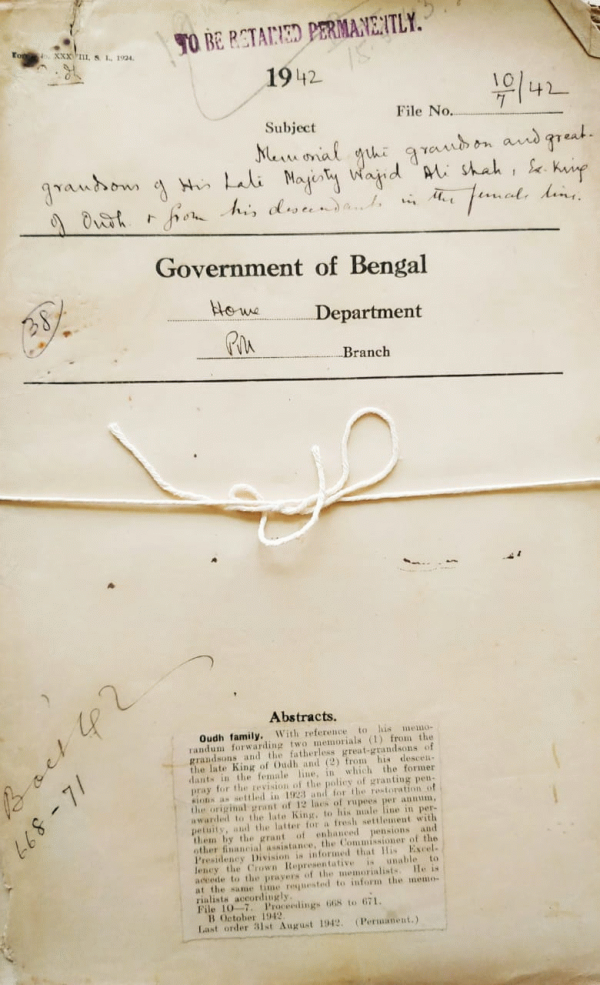 TO BE RETAINED PERMANENTLY.
XXXVIII, S. L., 1924.
1942
File No. 10/7/42
Subject
Memorial of the grandson and great-
grandsons of His Late Majesty Wajid Ali Shah, Ex. King
of Oudh & from his descendants in the female line.
Government of Bengal
Home Department
Poll Branch
38
Abstracts.
Oudh family. With reference to his memo-
randum forwarding two memorials (1) from the
grandsons and the fatherless great-grandsons of
the late King of Oudh and (2) from his descen-
dants in the female line, in which the former
pray for the revision of the policy of granting pen-
sions as settled in 1923 and for the restoration of
the original grant of 12 lacs of rupees per annum,
awarded to the late King, to his male line in per-
petuity, and the latter for a fresh settlement with
them by the grant of enhanced pensions and
other financial assistance, the Commissioner of the
Presidency Division is informed that His Excel-
lency the Crown Representative is unable to
accede to the prayers of the memorialists. He is
at the same time requested to inform the memo-
rialists accordingly.
File 10—7. Proceedings 668 to 671.
B October 1942.
Last order 31st August 1942. (Permanent.)
B Oct 42
668-71